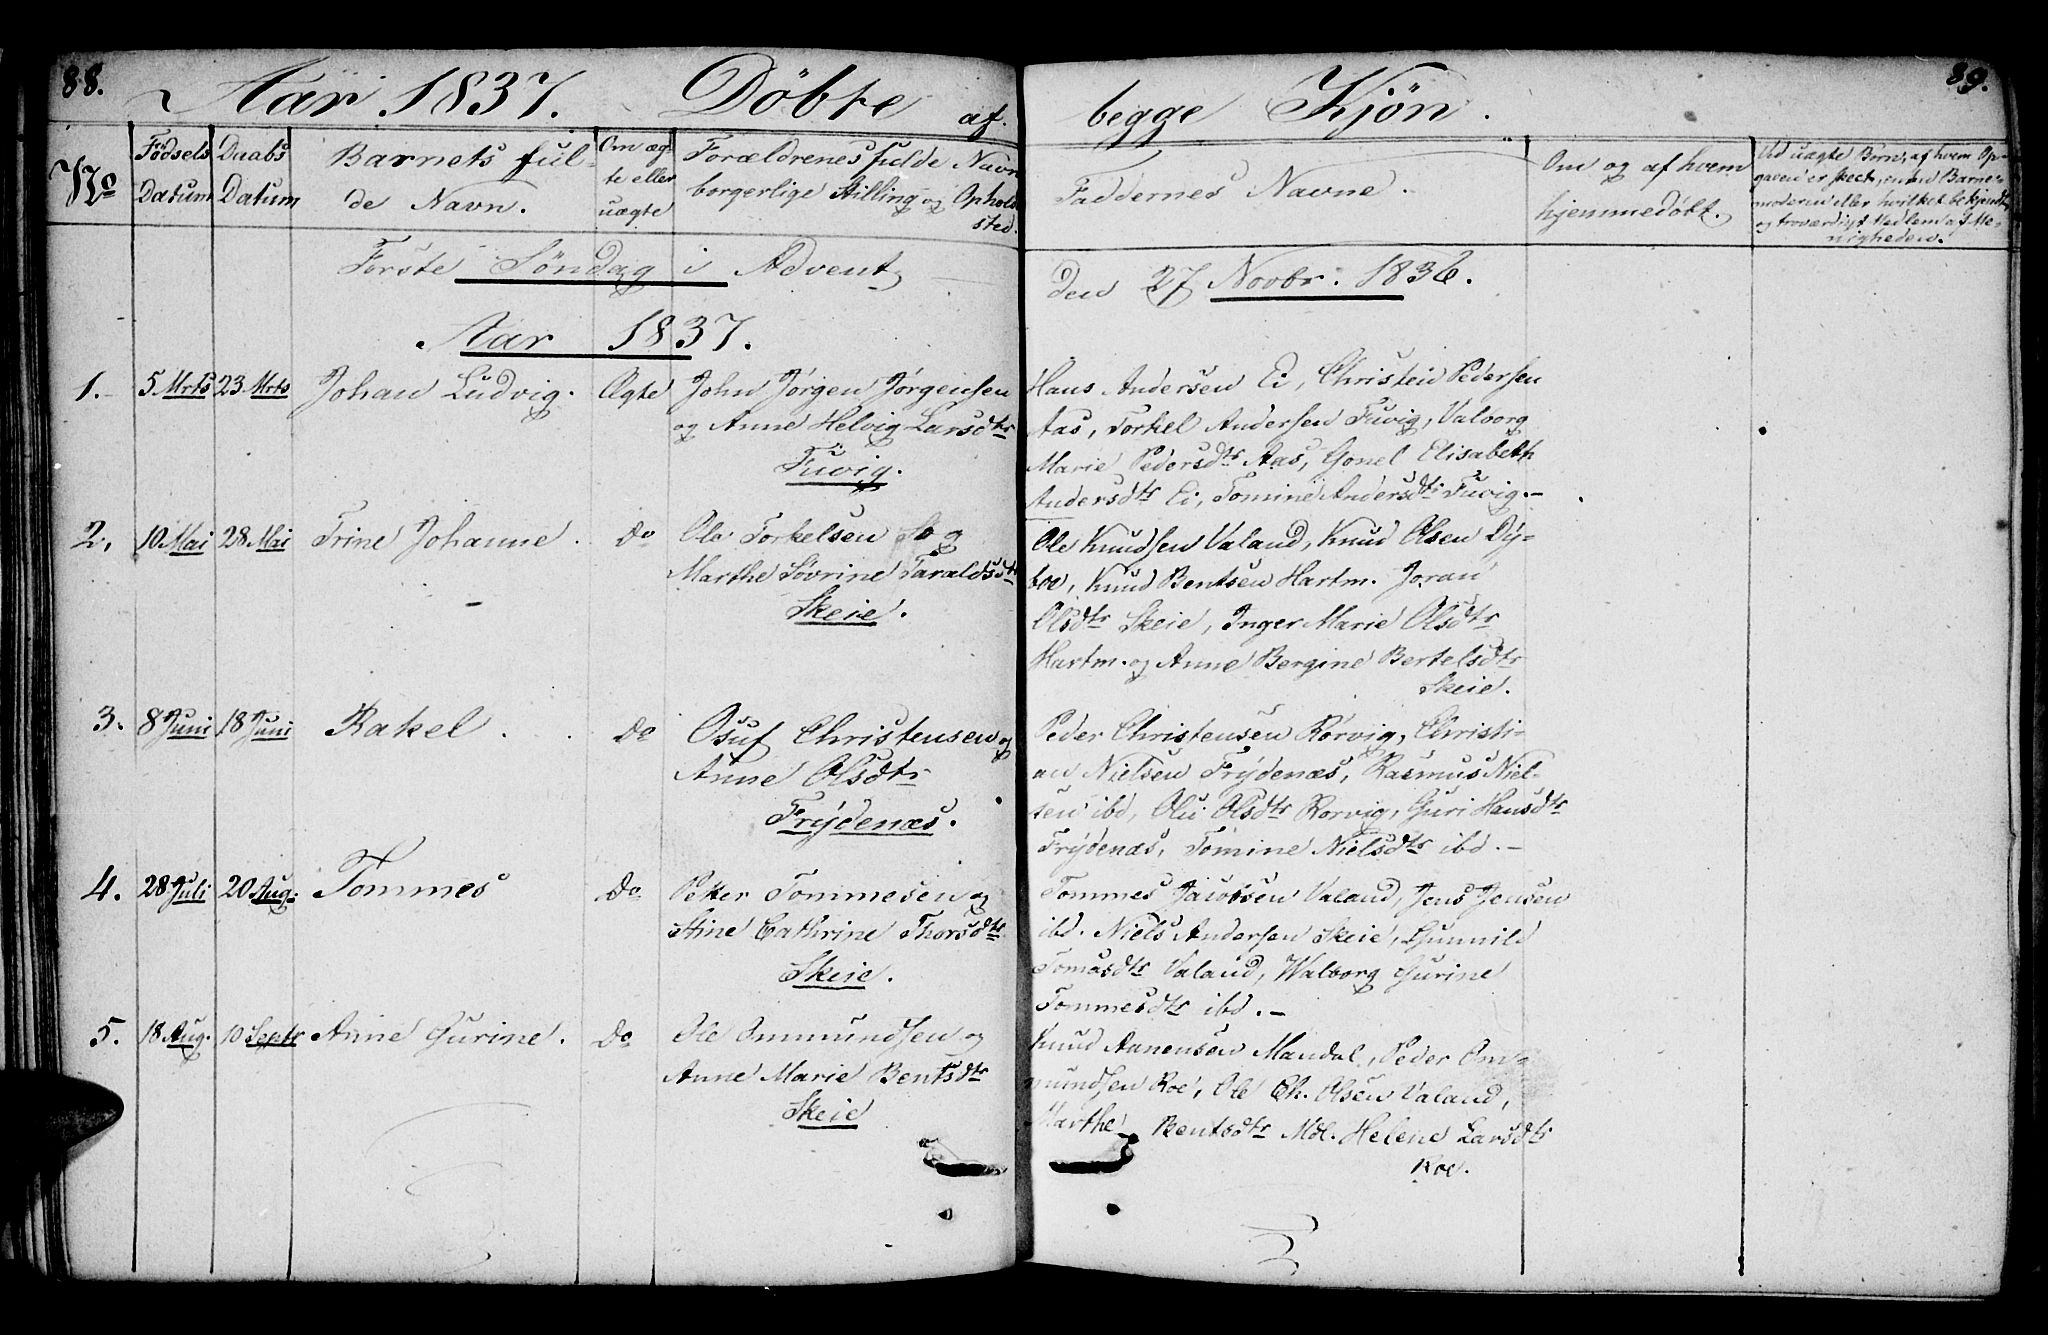 88.
Aar 1837. Döbte af.
begge Kjön.
89.
No
Födsels Datum
Daabs Datum
Barnets ful-
de Navn.
Om æg-
te eller
uægte
Forældrenes fulde Navn
borgerlige Stilling og Ophold
sted.
Faddernes Navne.
Om og af hvem
hjemmedöbt.
Ved uægte Börn, af hvem Op-
gaven er skeet, enten Barne-
moderen eller hvilket bekjendt
og troværdigt Medlem af Me-
nigheden.
Förste Söndag i Advent
den 27 Novbr. 1836.
Aar 1837.
1. 5 Mrts 23 Mrts Johan Ludvig. Ægte John Jörgen Jörgensen
og Anne Helvig Larsdtr
Tuvig.
Hans Andersen Ei, Christen Pedersen
Aas, Torkel Andersen Tuvig, Valborg
Marie Pedersdtr Aas, Gonel Elisabeth
Andersdtr Ei, Tomine Andersdtr Tuvig.-
2. 10 Mai 28 Mai Trine Johanne. Do Ole Torkelsen og
Marthe Sövrine Taraldsdtr
Skeie.
Ole Knudsen Valand, Knud Olsen Dy-
boe, Knud Bentsen Hartm. Joran
Olsdtr Skeie, Inger Marie Olsdtr
Hartm. og Anne Bergine Bertelsdtr
Skeie.
3. 8 Juni 18 Juni Rakel. Do Osuf Christensen og
Anne Olsdtr
Frydenæs.
Peder Christensen Rörvig, Christi-
an Nielsen Frydenæs, Rasmus Niel-
sen ibd, Olu Olsdtr Rörvig, Guri Hansdtr
Frydenæs, Tomine Nielsdtr ibd.-
4. 28 Juli 20 Aug. Tommes Do Petter Tommesen og
Stine Cathrine Thorsdtr
Skeie.
Tommes Jacobsen Valand, Jens Jensen
ibd. Niels Andersen Skeie, Gunnild
Tomasdtr Valand, Walborg Gurine
Tommesdtr ibd.-
5. 18 Aug. 10 Septr Anne Gurine. Do Ole Ommundsen og
Anne Marie Bentsdtr
Skeie
Knud Aanensen Mandal, Peder Om-
mundsen Roe, Ole Ch. Olsen Valand,
Marthe Bentsdtr Mdl. Helene Larsdtr
Roe.